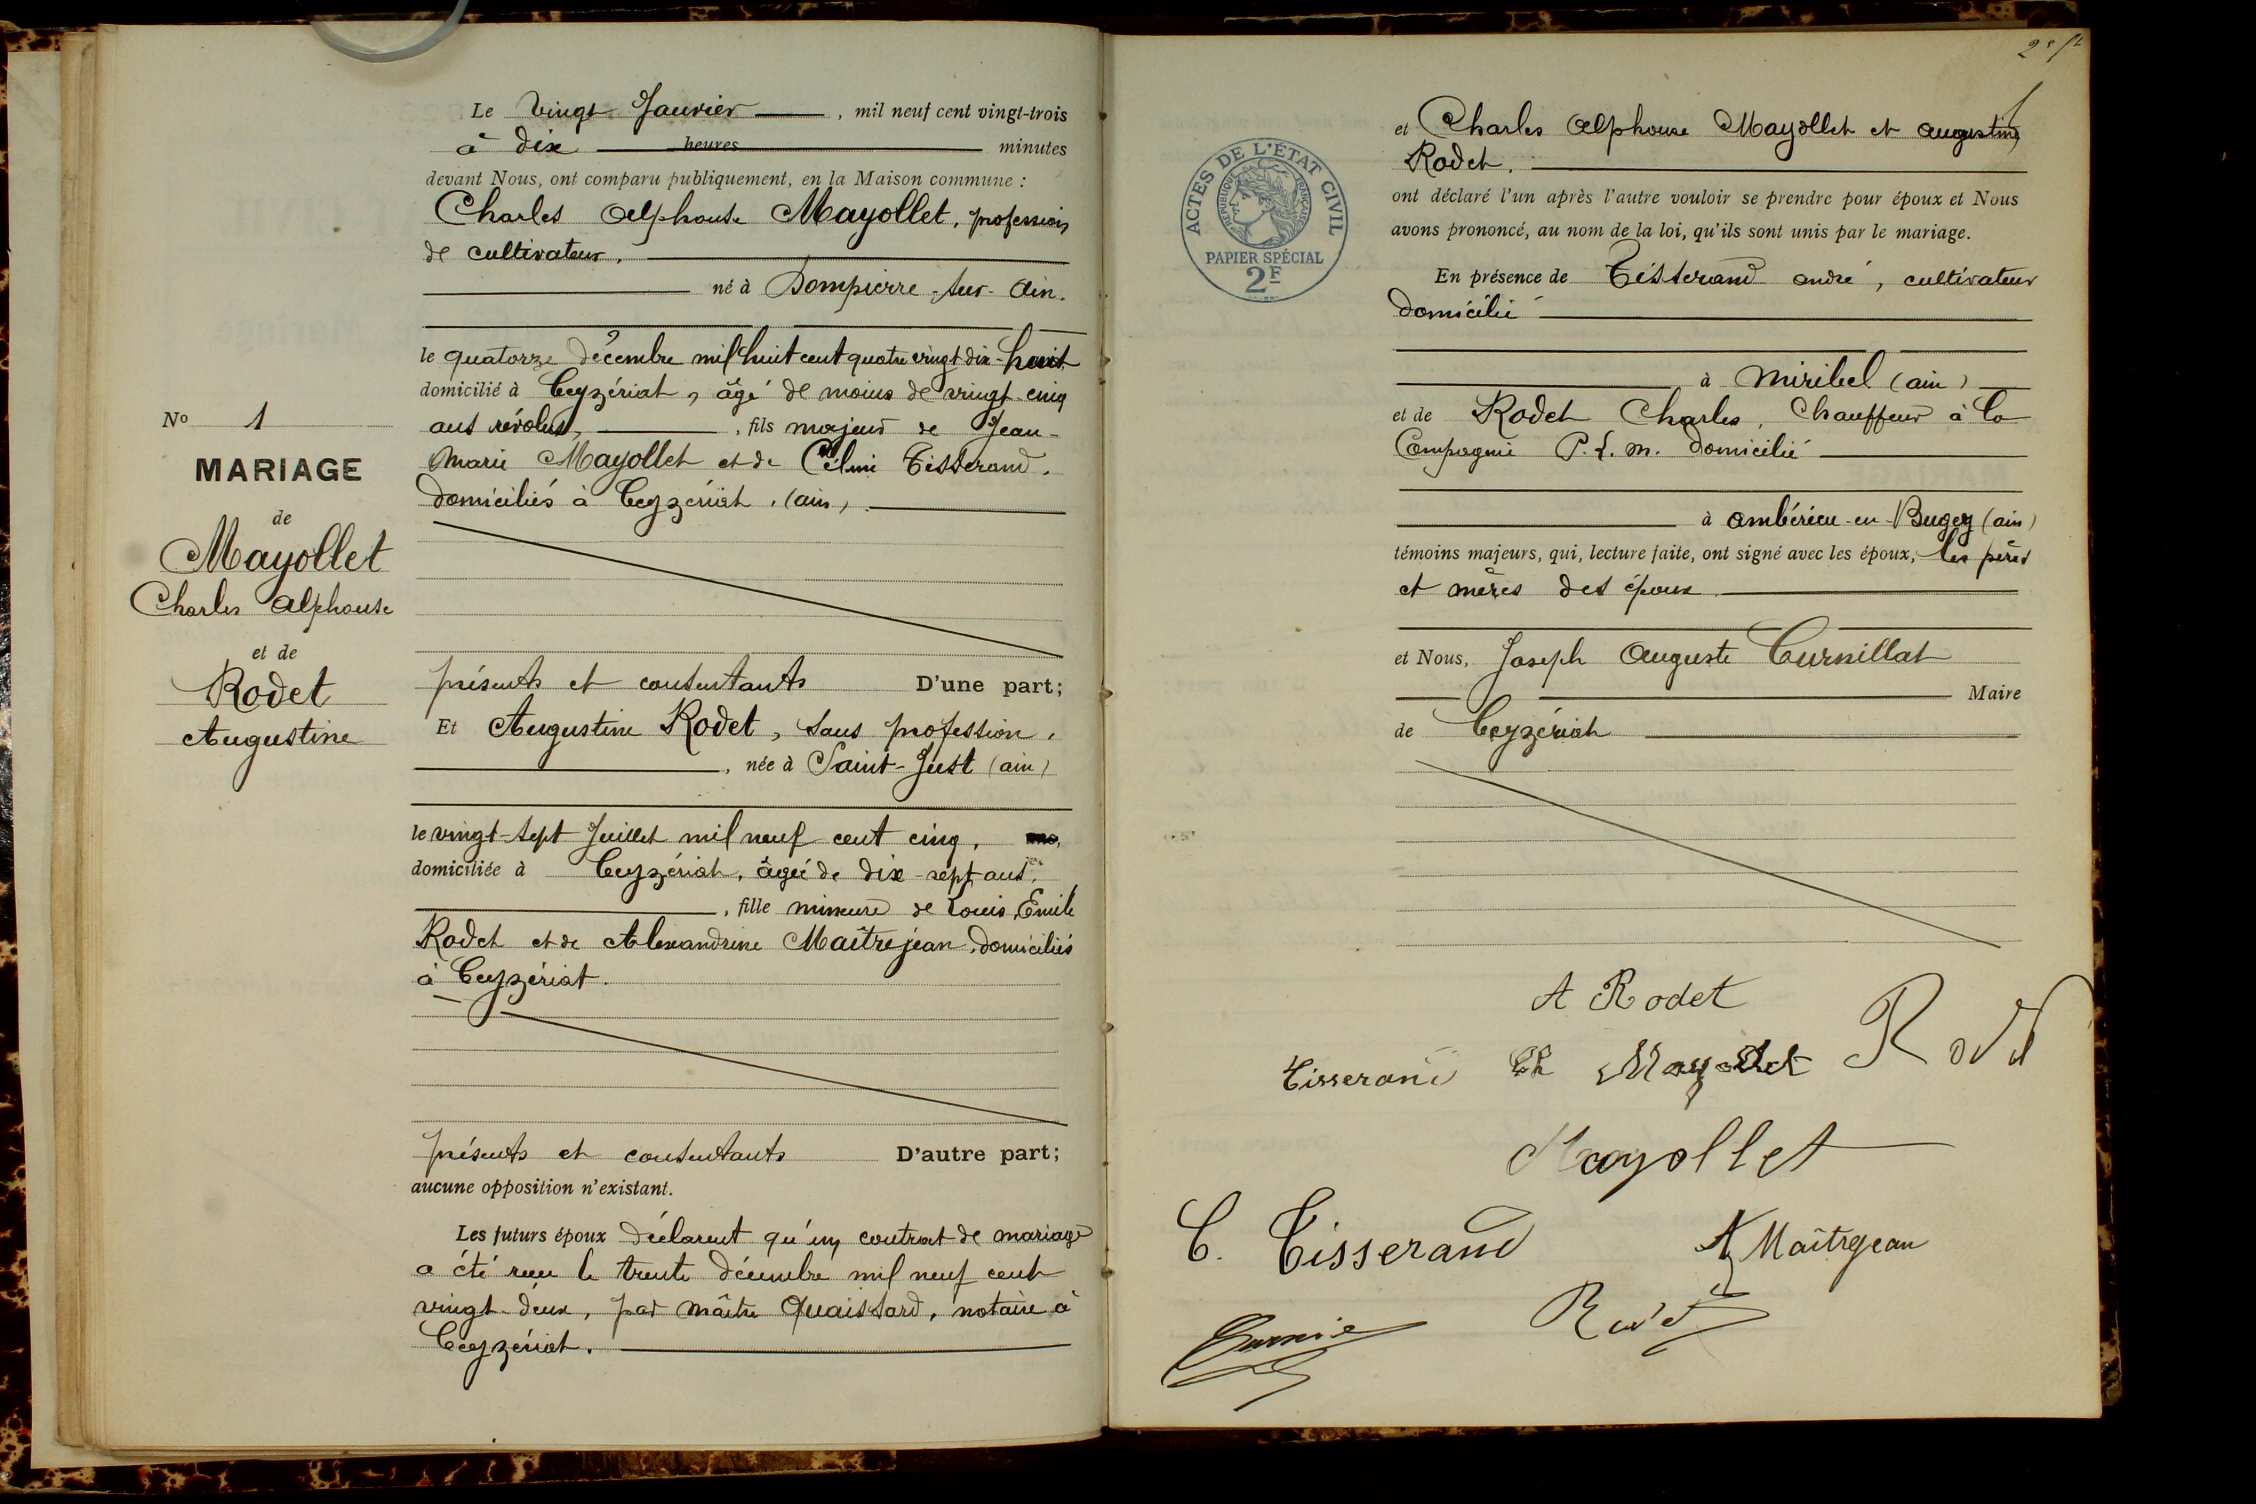 Le vingt Janvier, mil neuf cent vingt-trois
à dix heures minutes
devant Nous, ont comparu publiquement, en la Maison commune :
Charles Alphonse Mayollet, profession
de cultivateur.
né à Dompierre-sur-Ain.
le quatorze décembre mil huit cent quatre vingt dix-huit
domicilié à Ceyzériat, âgé de moins de vingt-cinq
ans révolus, fils majeur de Jean-
Marie Mayollet et de Célini Tisserand.
domiciliés à Ceyzériat, (ain).
présents et consentants D'une part;
Et Augustine Rodet, sans profession,
née à Saint-Just (ain)
le vingt-sept Juillet mil neuf cent cinq.
domiciliée à Ceyzériat, âgée de dix-sept ans,
fille mineure de Louis, Emile
Rodet et de Alexandrine Maîtrejean, domiciliés
à Ceyzériat.
présents et consentants D'autre part;
aucune opposition n'existant.
Les futurs époux déclarent qu'un contrat de mariage
a été reçu le trente décembre mil neuf cent
vingt-deux, par maître Quaissard, notaire à
Ceyzériat.
No 1
MARIAGE
de
Mayollet
Charles Alphonse
et de
Rodet
Augustine
ACTES DE L'ÉTAT CIVIL
RÉPUBLIQUE FRANÇAISE
PAPIER SPÉCIAL
2F
et Charles Alphonse Mayollet et Augustine
Rodet.
ont déclaré l'un après l'autre vouloir se prendre pour époux et Nous
avons prononcé, au nom de la loi, qu'ils sont unis par le mariage.
En présence de Tisserand andré, cultivateur
domicilié
à Miribel (ain)
et de Rodet Charles, Chauffeur à la
Compagnie P.L.M. domicilié
à Ambérieu-en-Bugey (ain)
témoins majeurs, qui, lecture faite, ont signé avec les époux, les pères
et mères des époux.
et Nous, Joseph Auguste Curnillat
Maire
de Ceyzériat
A Rodet
Tisserand Ch Mayollet Rodet
Mayollet
C. Tisserand A Maîtrejean
Rodet